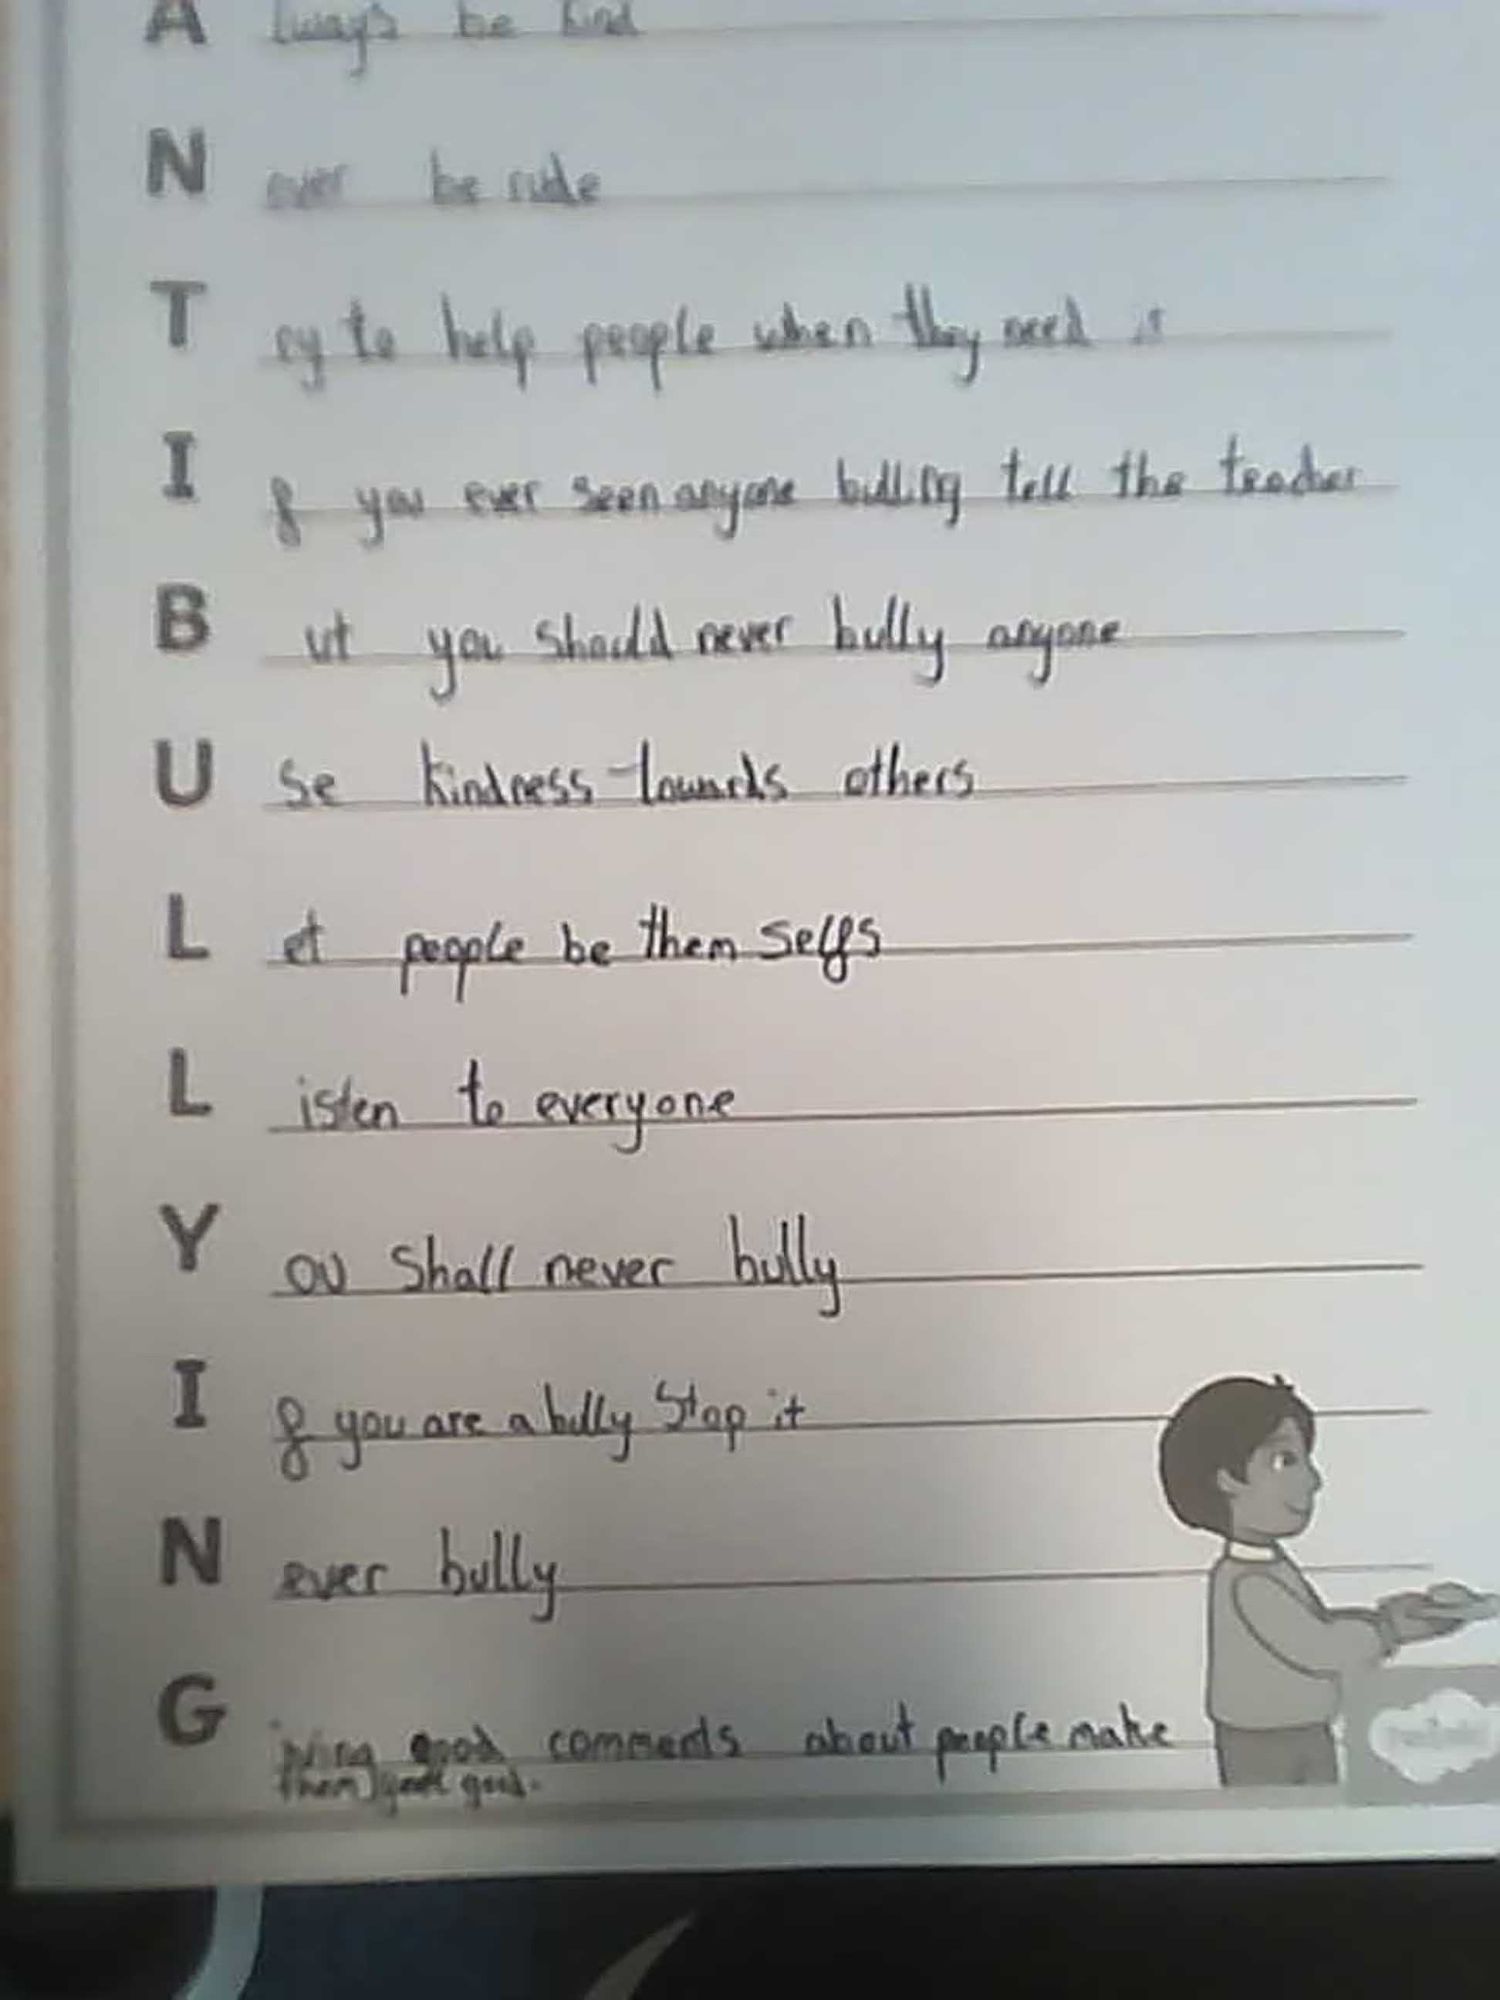 Always be kind
Never be rude
Try to help people when they need it
If you ever seen anyone bulling tell the teacher
But you should never bully anyone
Use kindness towards others
Let people be them selfs
Listen to everyone
You Shall never bully
If you are a bully Stop it
Never bully
Giving good comments about people make
them good.